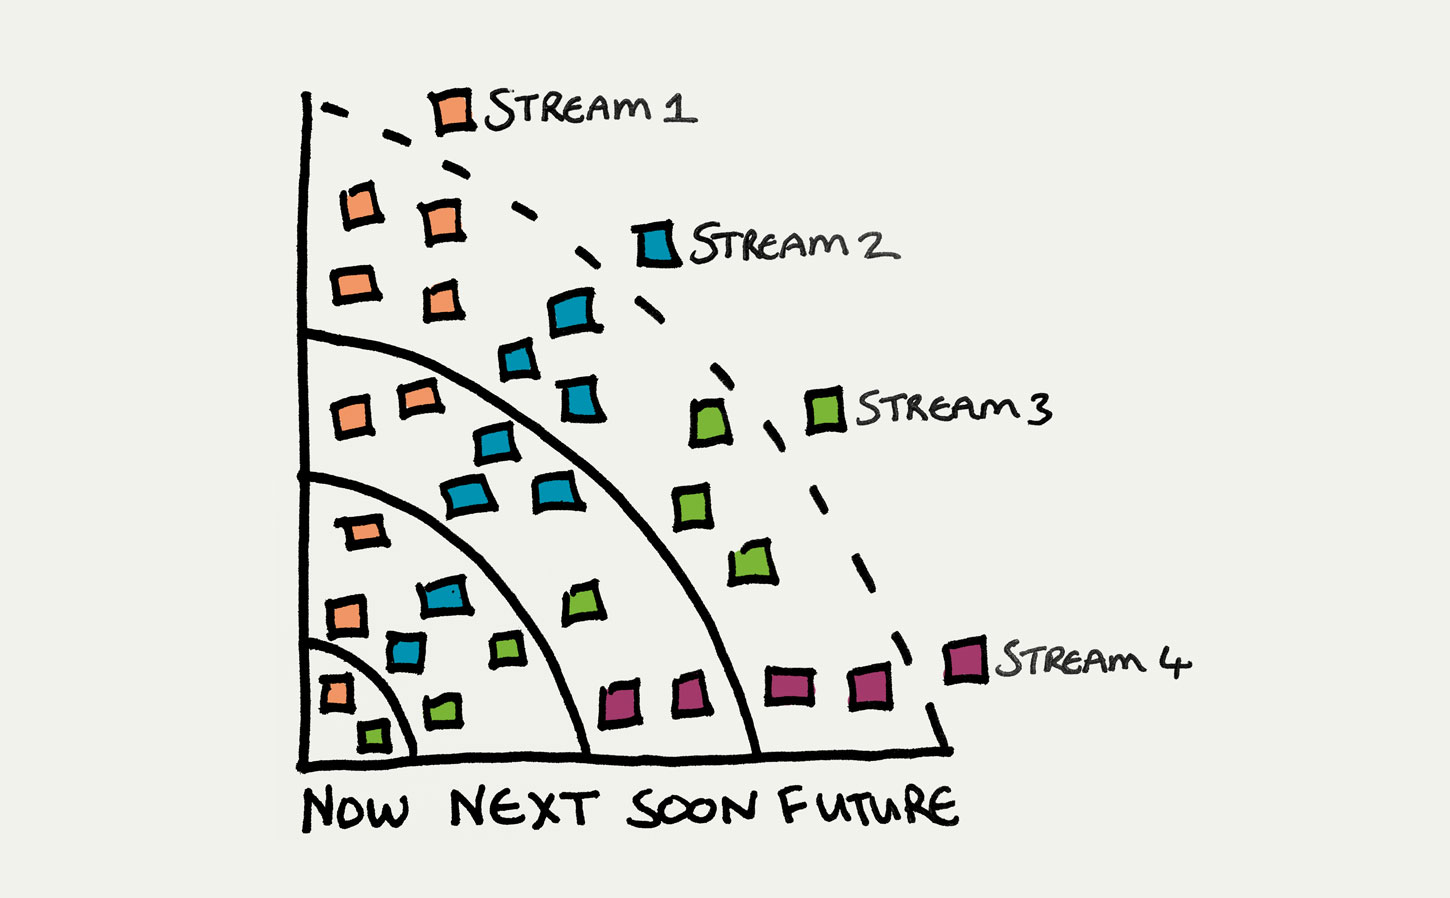 STREAM 1
STREAM 2
STREAM 3
STREAM 4
NOW NEXT SOON FUTURE